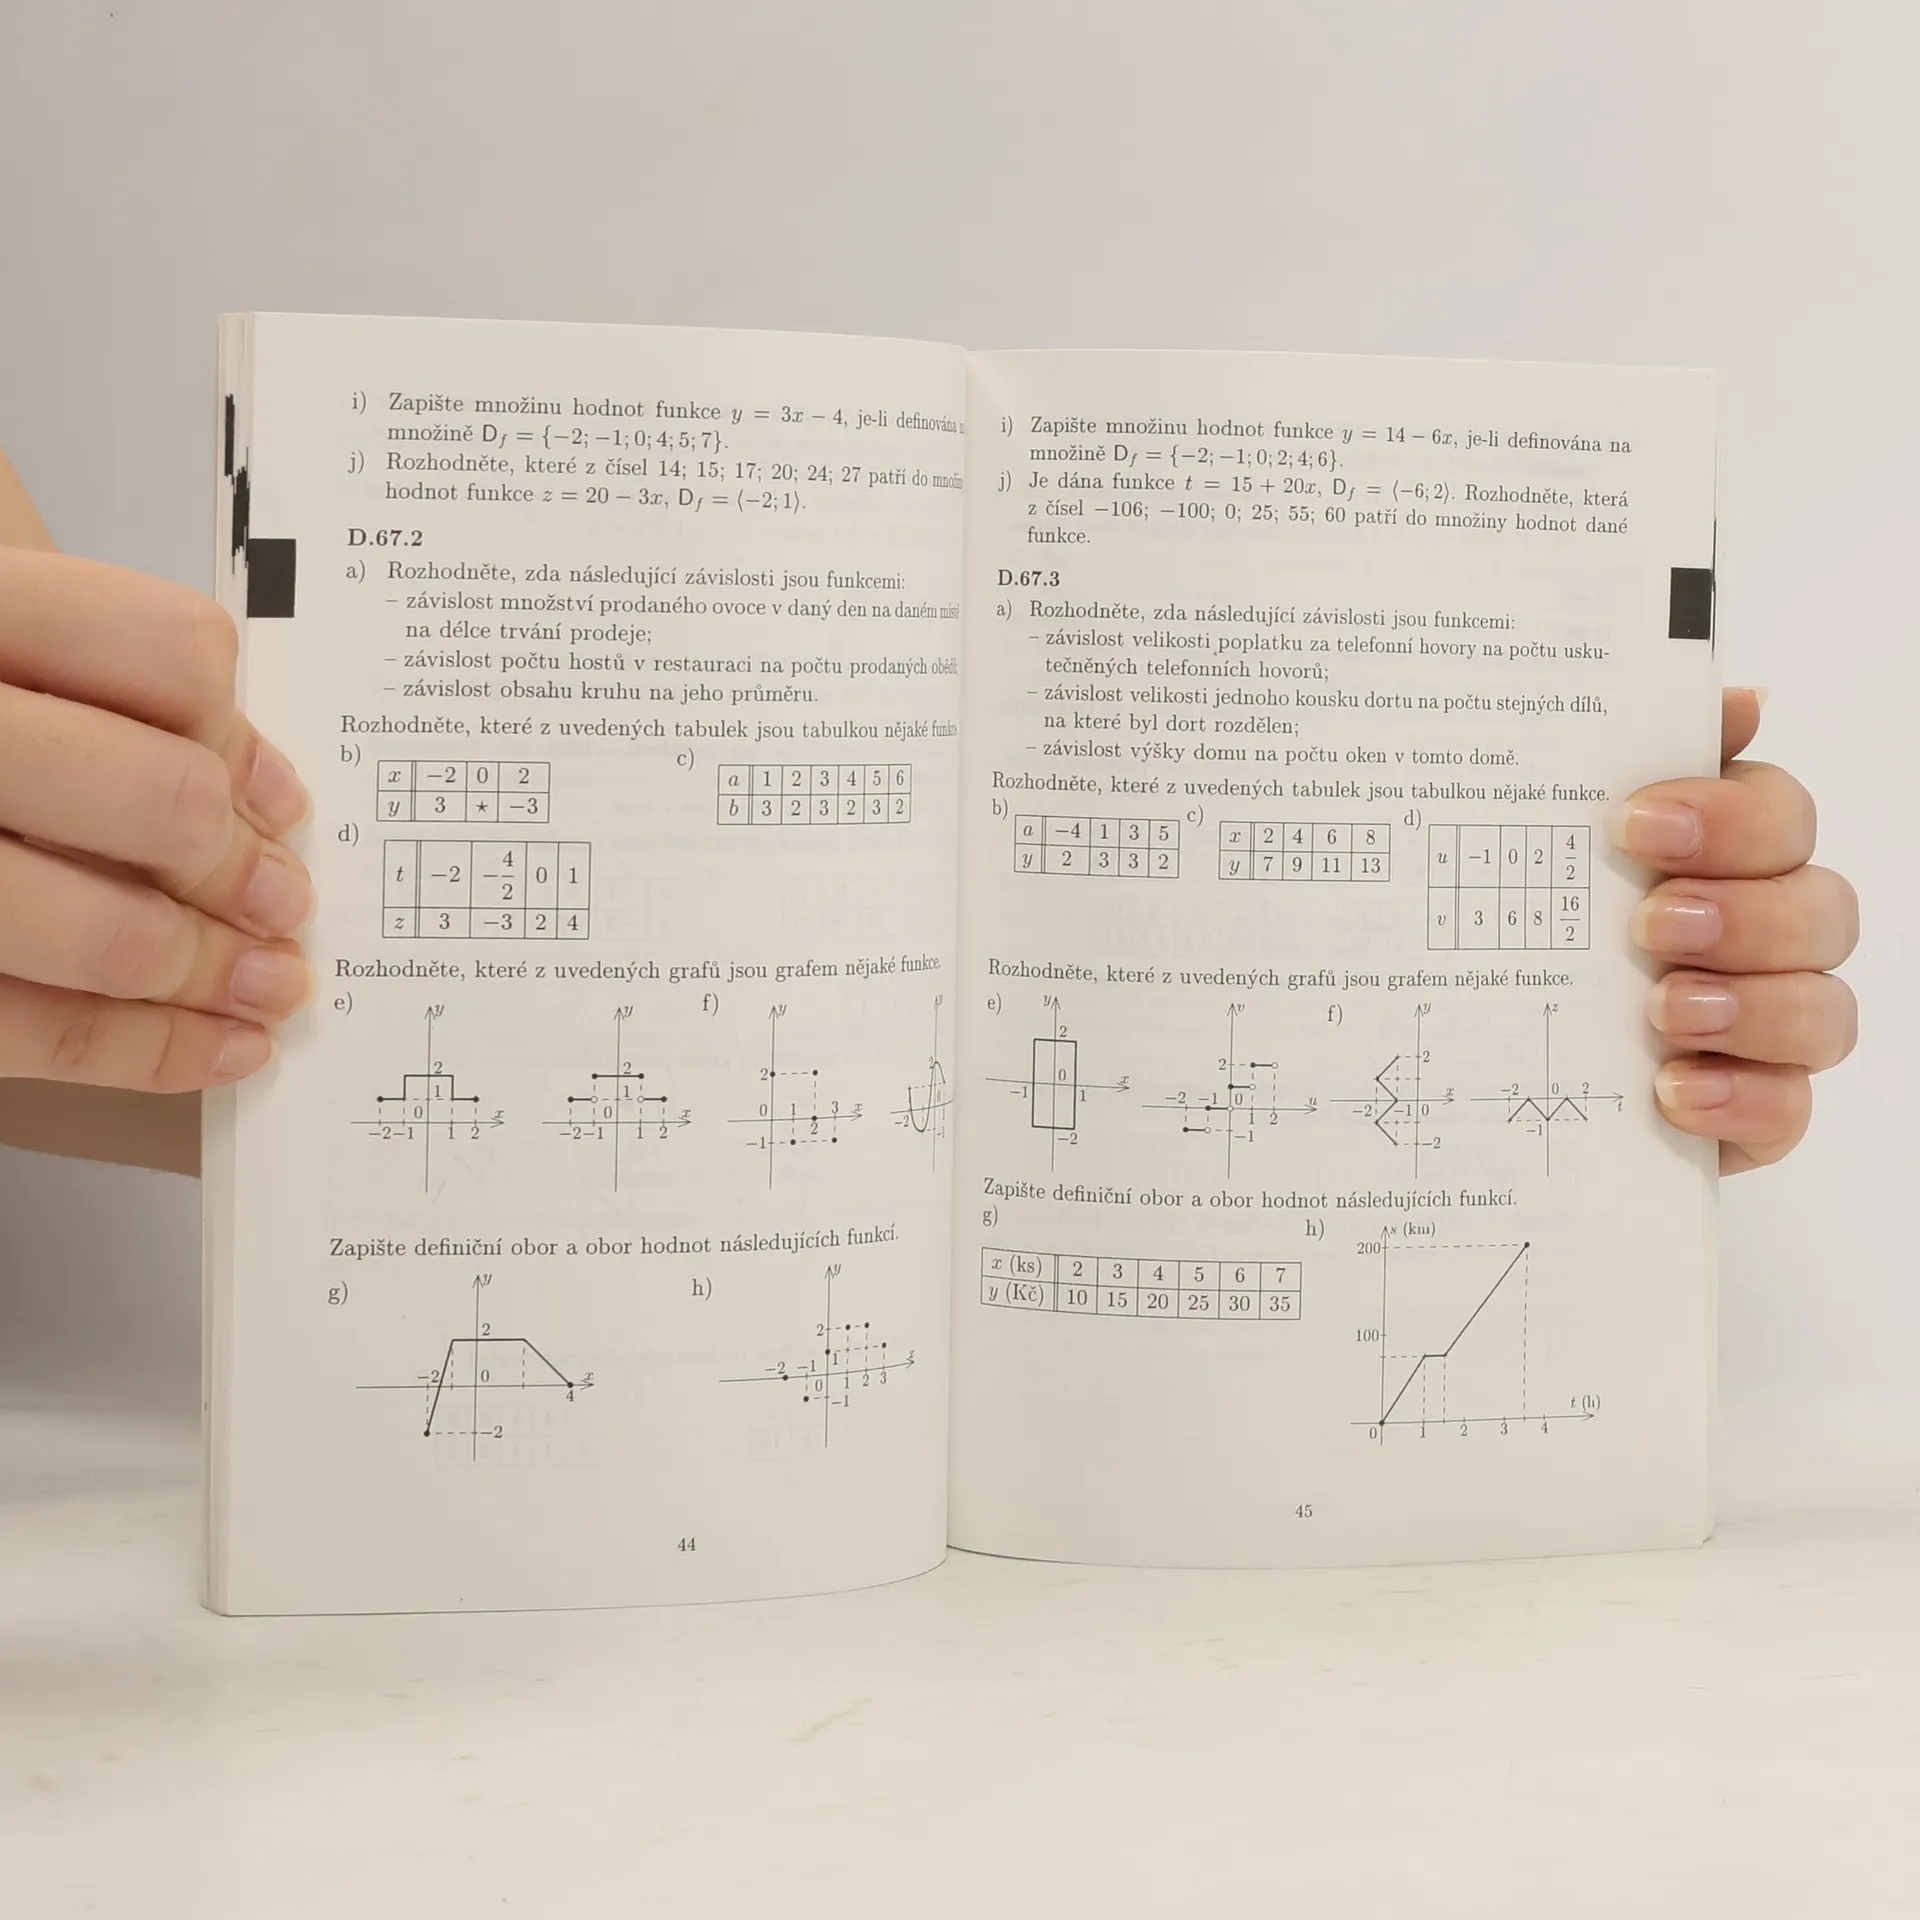 i) Zapište množinu hodnot funkce y = 3x − 4, je-li definována
množině D_f = {−2; −1; 0; 4; 5; 7}.
j) Rozhodněte, které z čísel 14; 15; 17; 20; 24; 27 patří do
hodnot funkce z = 20 − 3x, D_f = ⟨−2; 1⟩.
D.67.2
a) Rozhodněte, zda následující závislosti jsou funkcemi:
– závislost množství prodaného ovoce v daný den na daném
na délce trvání prodeje;
– závislost počtu hostů v restauraci na počtu prodaných
– závislost obsahu kruhu na jeho průměru.
Rozhodněte, které z uvedených tabulek jsou tabulkou nějaké
b) c)
x −2 0 2
y 3 ⋆ −3
a 1 2 3 4 5 6
b 3 2 3 2 3 2
d)
t −2 −4/2 0 1
z 3 −3 2 4
Rozhodněte, které z uvedených grafů jsou grafem nějaké funkce.
e) f)
y y y y
2 2 2 2
1 1
0 x 0 x 0 1 2 3 x −2 0
−2 −1 1 2 −2 −1 1 2 −1 −1
Zapište definiční obor a obor hodnot následujících funkcí.
g) h)
y y
2 2
−2 0 4 x −2 −1 1 0 1 2 3 x
−2 −1
44
i) Zapište množinu hodnot funkce y = 14 − 6x, je-li definována na
množině D_f = {−2; −1; 0; 2; 4; 6}.
j) Je dána funkce t = 15 + 20x, D_f = ⟨−6; 2⟩. Rozhodněte, která
z čísel −106; −100; 0; 25; 55; 60 patří do množiny hodnot dané
funkce.
D.67.3
a) Rozhodněte, zda následující závislosti jsou funkcemi:
– závislost velikosti poplatku za telefonní hovory na počtu usku-
tečněných telefonních hovorů;
– závislost velikosti jednoho kousku dortu na počtu stejných dílů,
na které byl dort rozdělen;
– závislost výšky domu na počtu oken v tomto domě.
Rozhodněte, které z uvedených tabulek jsou tabulkou nějaké funkce.
b) c) d)
a −4 1 3 5
y 2 3 3 2
x 2 4 6 8
y 7 9 11 13
u −1 0 2 4/2
v 3 6 8 16/2
Rozhodněte, které z uvedených grafů jsou grafem nějaké funkce.
e) f)
y v y z
2 2 2
−1 0 1 x −2 −1 0 1 2 u −2 −1 0 x −2 0 2 t
−2 −1 −2 −1
Zapište definiční obor a obor hodnot následujících funkcí.
g) h)
x (ks) 2 3 4 5 6 7
y (Kč) 10 15 20 25 30 35
s (km)
200
100
t (h)
0 1 2 3 4
45